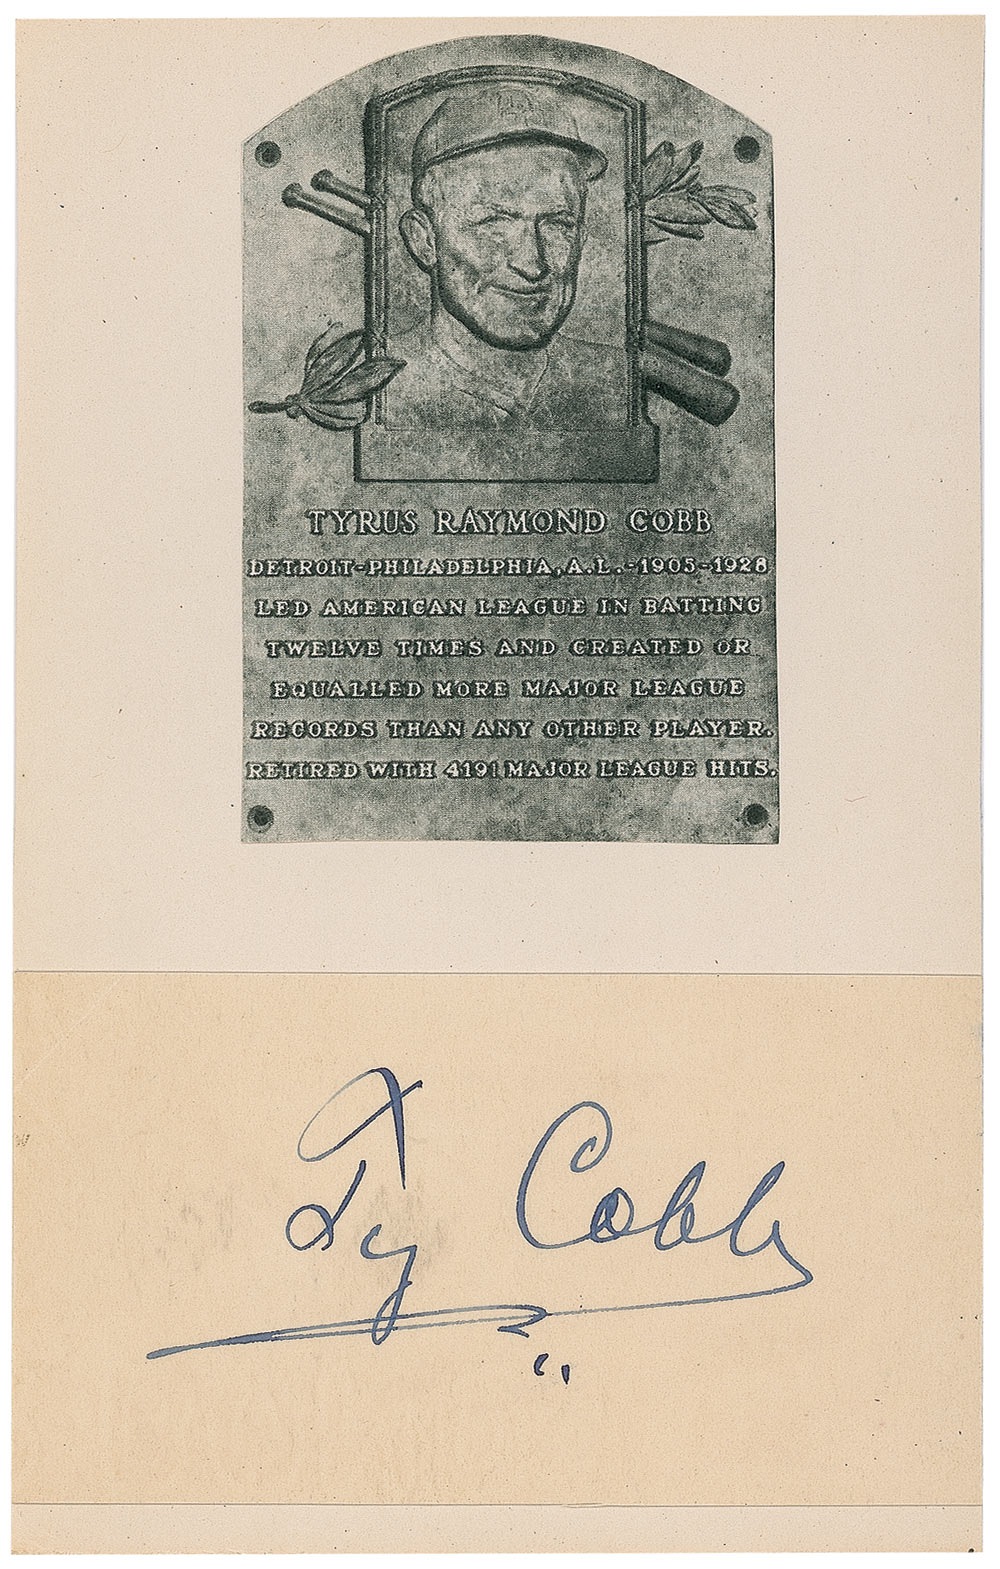 TYRUS RAYMOND COBB
DETROIT-PHILADELPHIA, A.L.-1905-1928
LED AMERICAN LEAGUE IN BATTING
TWELVE TIMES AND CREATED OR
EQUALLED MORE MAJOR LEAGUE
RECORDS THAN ANY OTHER PLAYER.
RETIRED WITH 4191 MAJOR LEAGUE HITS.
Ty Cobb